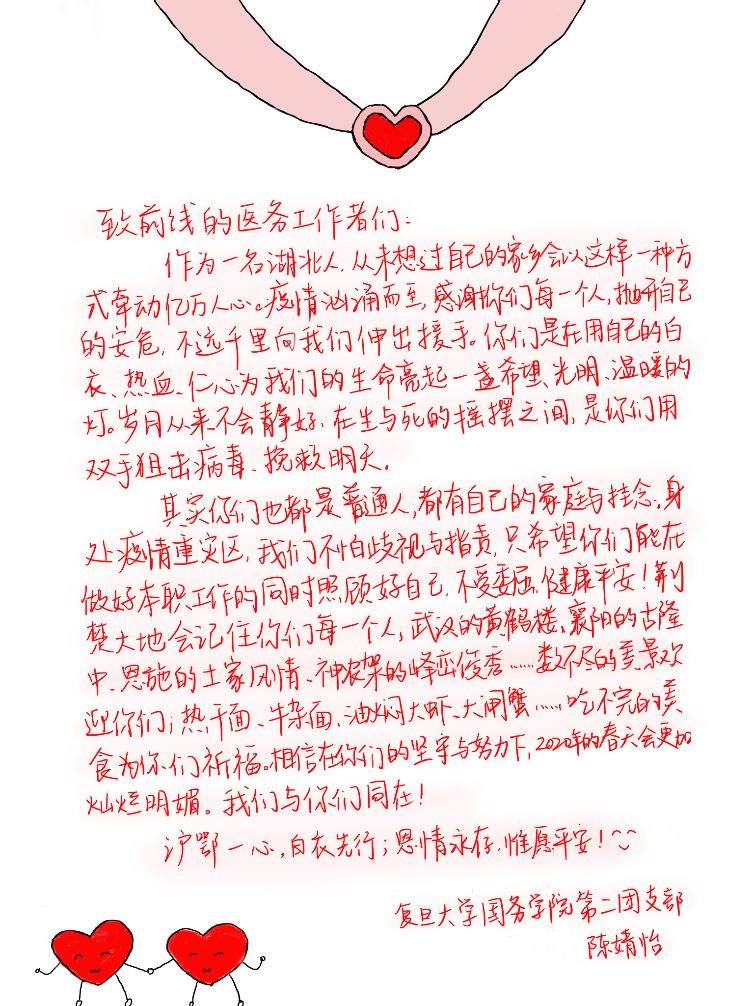 致前线的医务工作者们:
作为一名湖北人,从未想过自己的家乡会以这样一种方
式牵动亿万人心。疫情汹涌而至,感谢你们每一个人,抛开自己
的安危,不远千里向我们伸出援手。你们是在用自己的白
衣、热血、仁心为我们的生命亮起一盏希望、光明、温暖的
灯。岁月从来不会静好,在生与死的摇摆之间,是你们用
双手狙击病毒、挽救明天。
其实你们也都是普通人,都有自己的家庭与挂念。身
处疫情重灾区,我们不怕歧视与指责,只希望你们能在
做好本职工作的同时照顾好自己,不受委屈,健康平安!荆
楚大地会记住你们每一个人,武汉的黄鹤楼、襄阳的古隆
中、恩施的土家风情、神农架的峰峦俊秀……数不尽的美景欢
迎你们;热干面、牛杂面、油焖大虾、大闸蟹……吃不完的美
食为你们祈福。相信在你们的坚守与努力下,2020年的春天会更加
灿烂明媚。我们与你们同在!
沪鄂一心,白衣先行;恩情永存,惟愿平安!
复旦大学国务学院第二团支部
陈婧怡